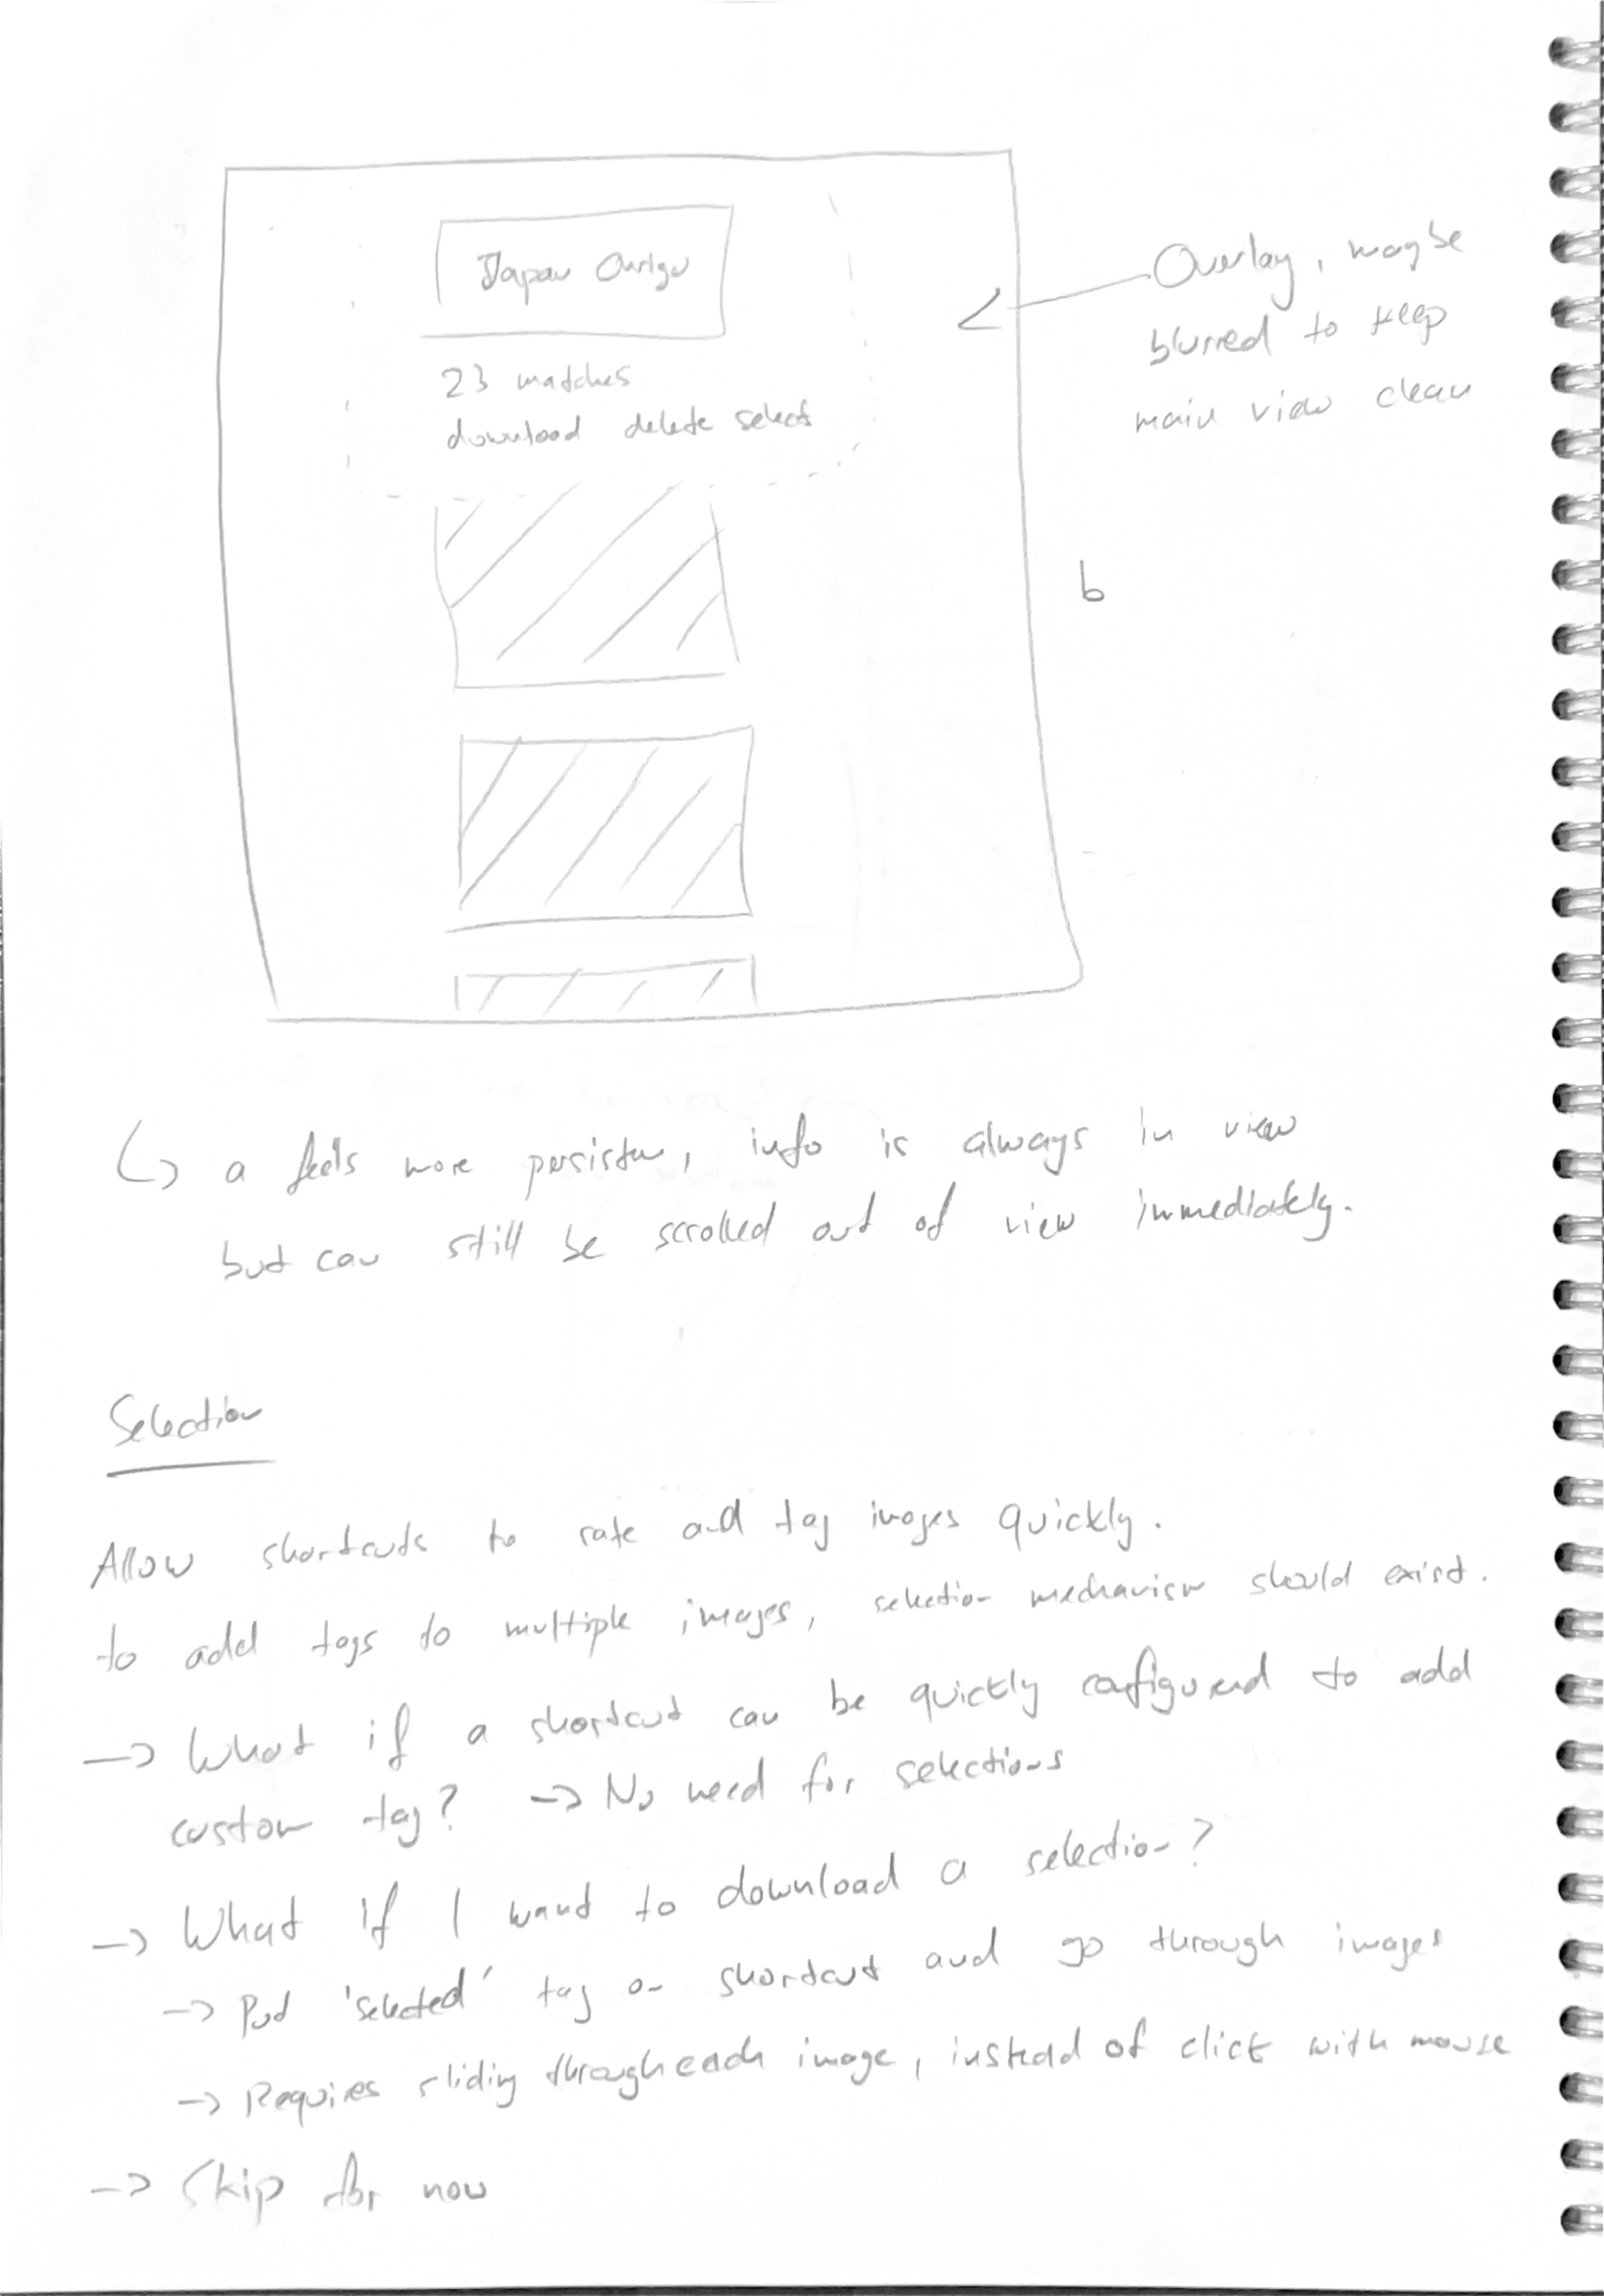 Japan
23 matches
download delete select
Overlay, maybe
blurred to keep
main view clean
b
a feels more persisten, info is always in view
but can still be scrolled out of view immediately.
Selection
Allow shortcuts to rate and tag images quickly.
to add tags to multiple images, selection mechanism should exist.
-> What if a shortcut can be quickly configured to add
custom tag? -> No need for selections
-> What if I want to download a selection?
-> Put 'selected' tag on shortcut and go through images
-> Requires sliding through each image, instead of click with mouse
-> Skip for now